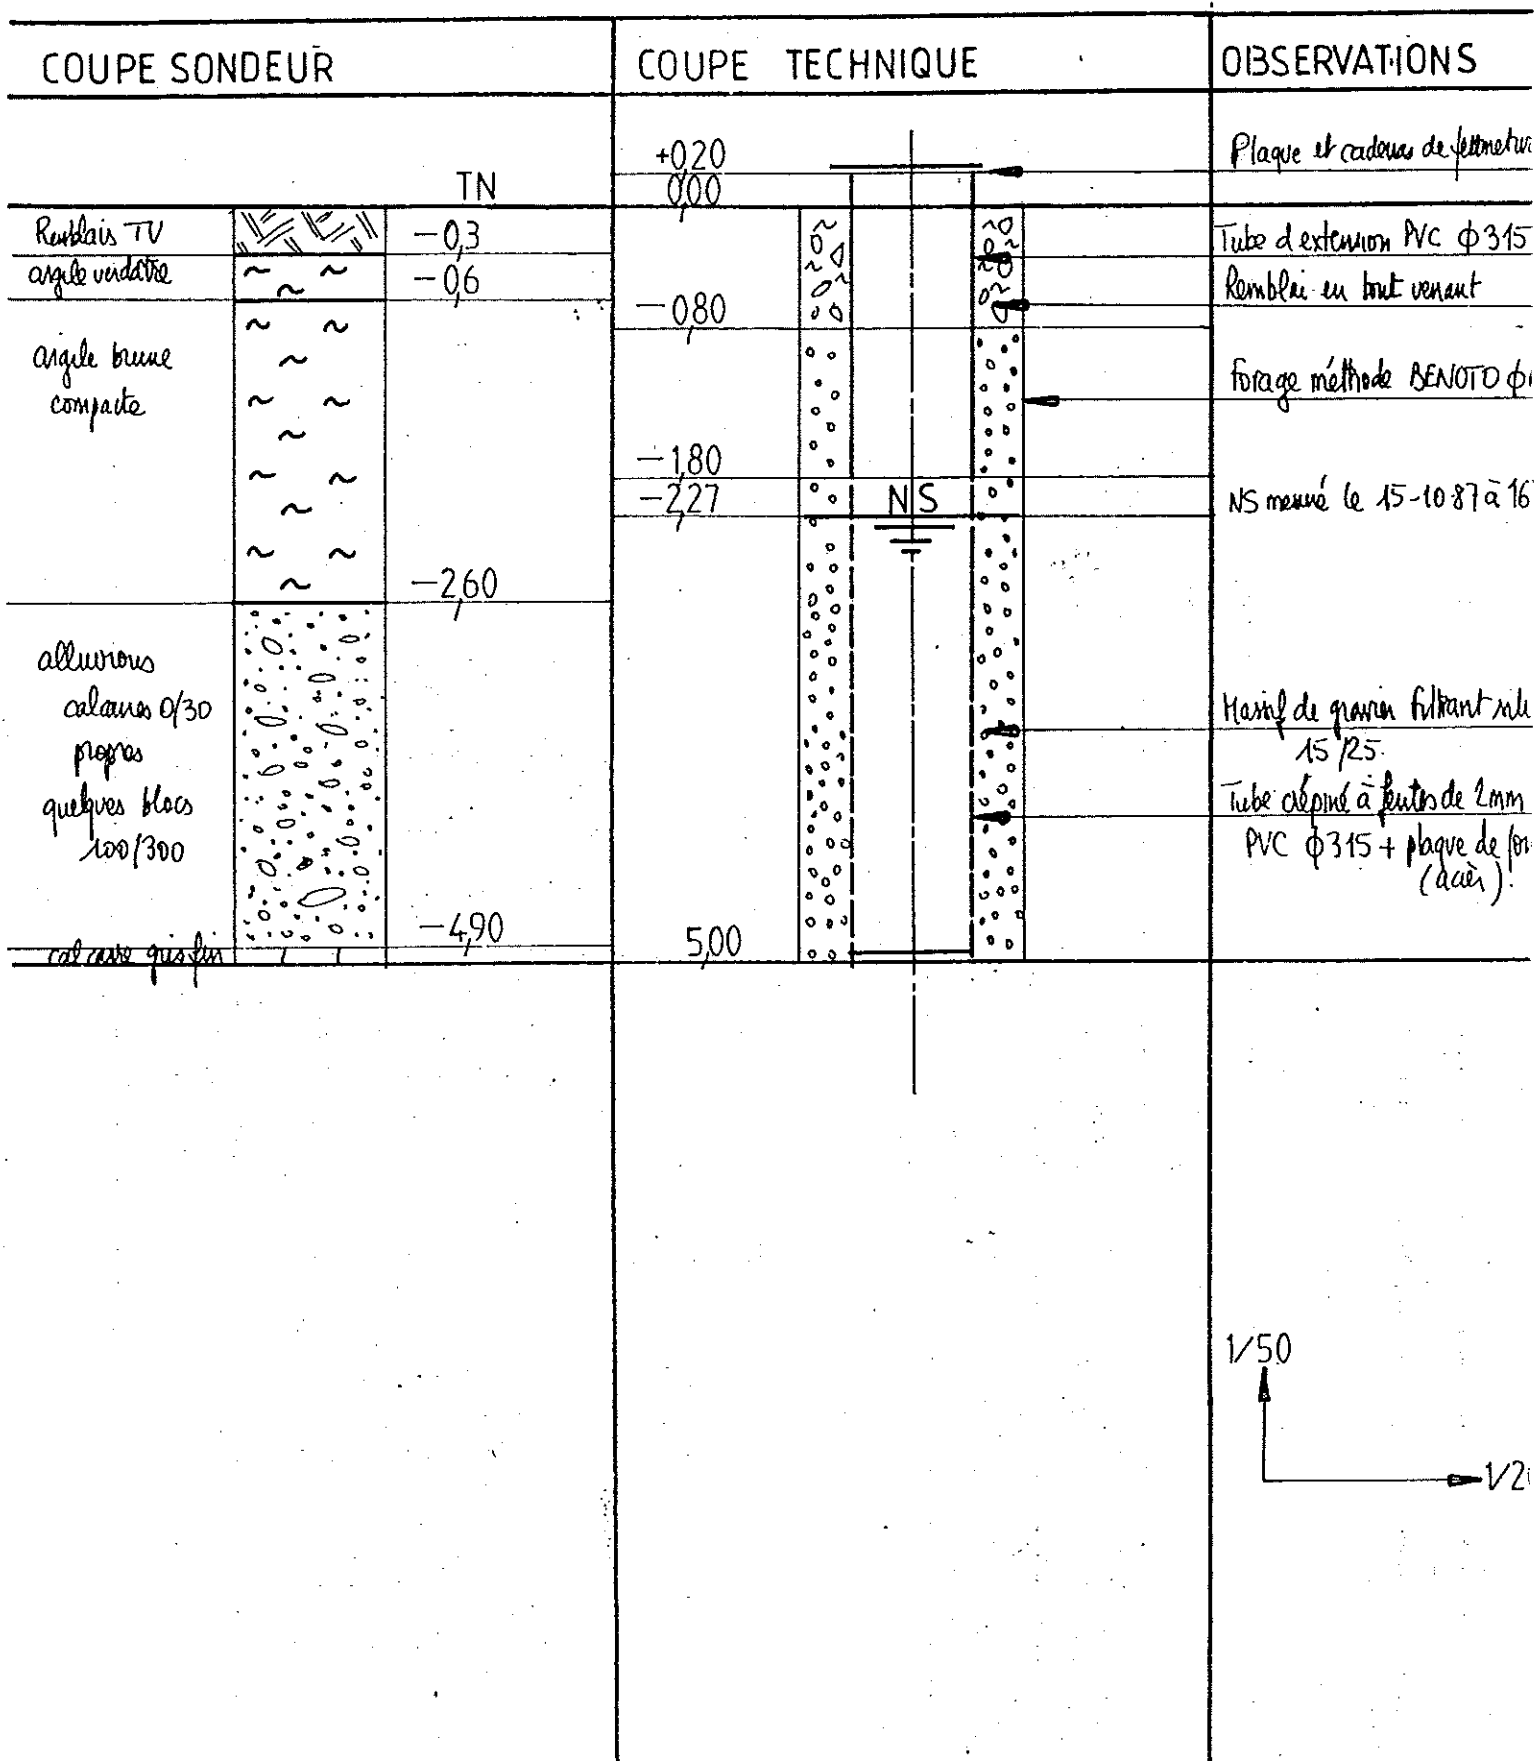 COUPE SONDEUR
COUPE TECHNIQUE
OBSERVATIONS
TN
Remblais TV
-0,3
argile verdâtre
-0,6
argile brune
compacte
-2,60
alluvions
calcaires 0/30
propres
quelques blocs
100/300
-4,90
calcaire gris fin
+0,20
0,00
-0,80
-1,80
-2,27
NS
5,00
Plaque et cadenas de
Tube d'extension PVC ϕ 315
Remblai en tout venant
Forage méthode BENOTO ϕ
NS mesuré le 15-10-87 à 16
Massif de gravier filtrant
15/25
Tube crépiné à fentes de 2mm
PVC ϕ 315 + plaque de
(acier).
1/50